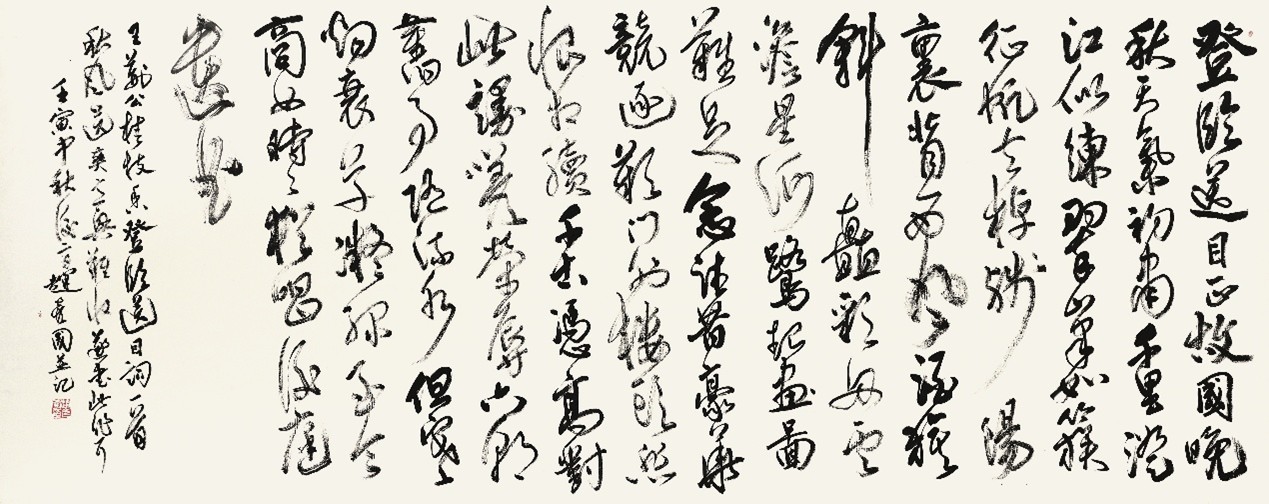 登臨送目正故國晚
秋天氣初肅千里澄
江似練翠峯如簇
征帆去棹殘陽
裏背西風酒旗
斜矗彩舟雲
澹星河鷺起畫圖
難足念往昔豪華
競逐歎門外樓頭悲
恨相續千古憑高對
此謾嗟榮辱六朝
舊事隨流水但寒
烟衰草凝綠至今
商女時時猶唱後庭
遺曲
王荊公桂枝香登臨送目詞一首
秋風送爽興難收書此
壬寅中秋後國並記